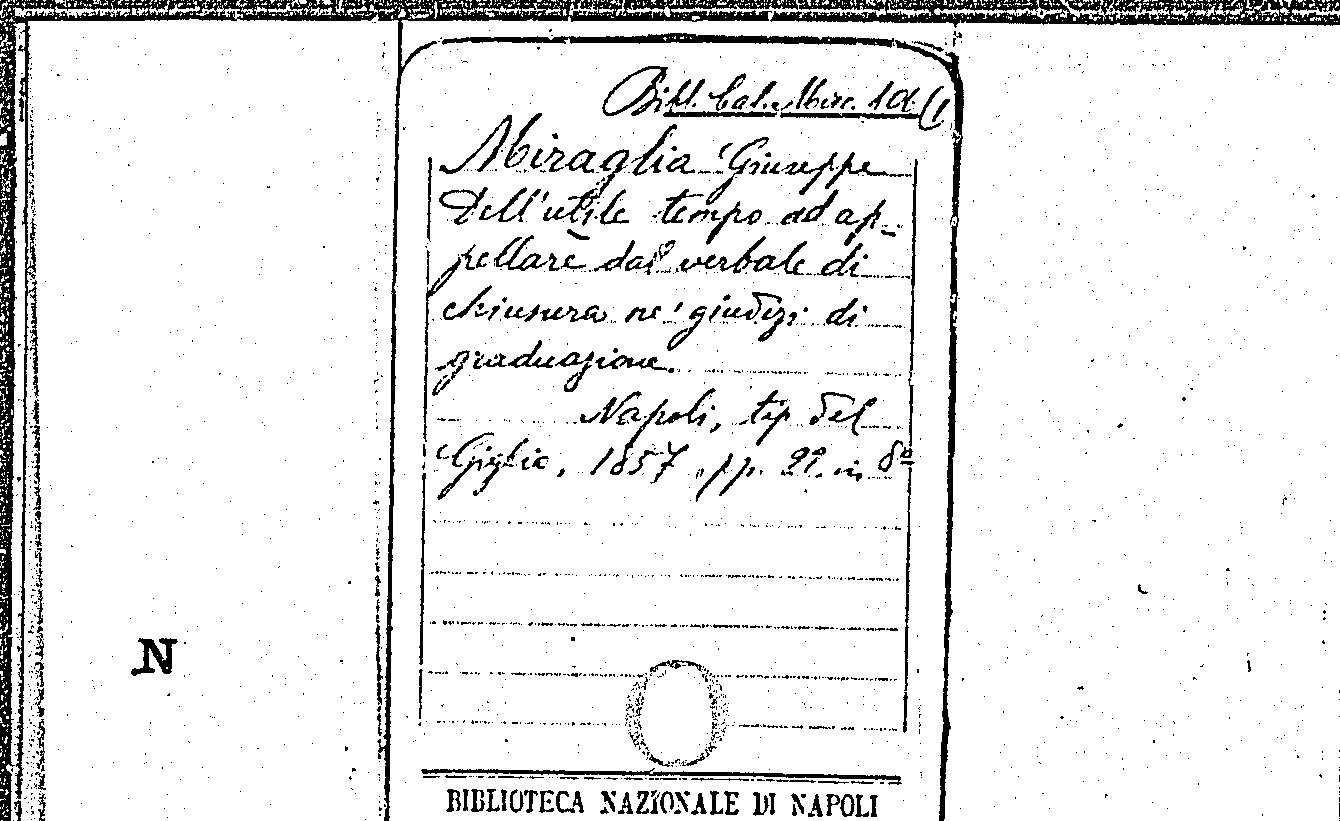 Bibl. Cal. Misc. 10 (1
Miraglia Giuseppe
Dell'utile tempo ad ap-
pellare dal verbale di
chiusura ne' giudizi di
graduazione.
Napoli, tip del
Giglio, 1857, pp. 22. in 8º
N
BIBLIOTECA NAZIONALE DI NAPOLI